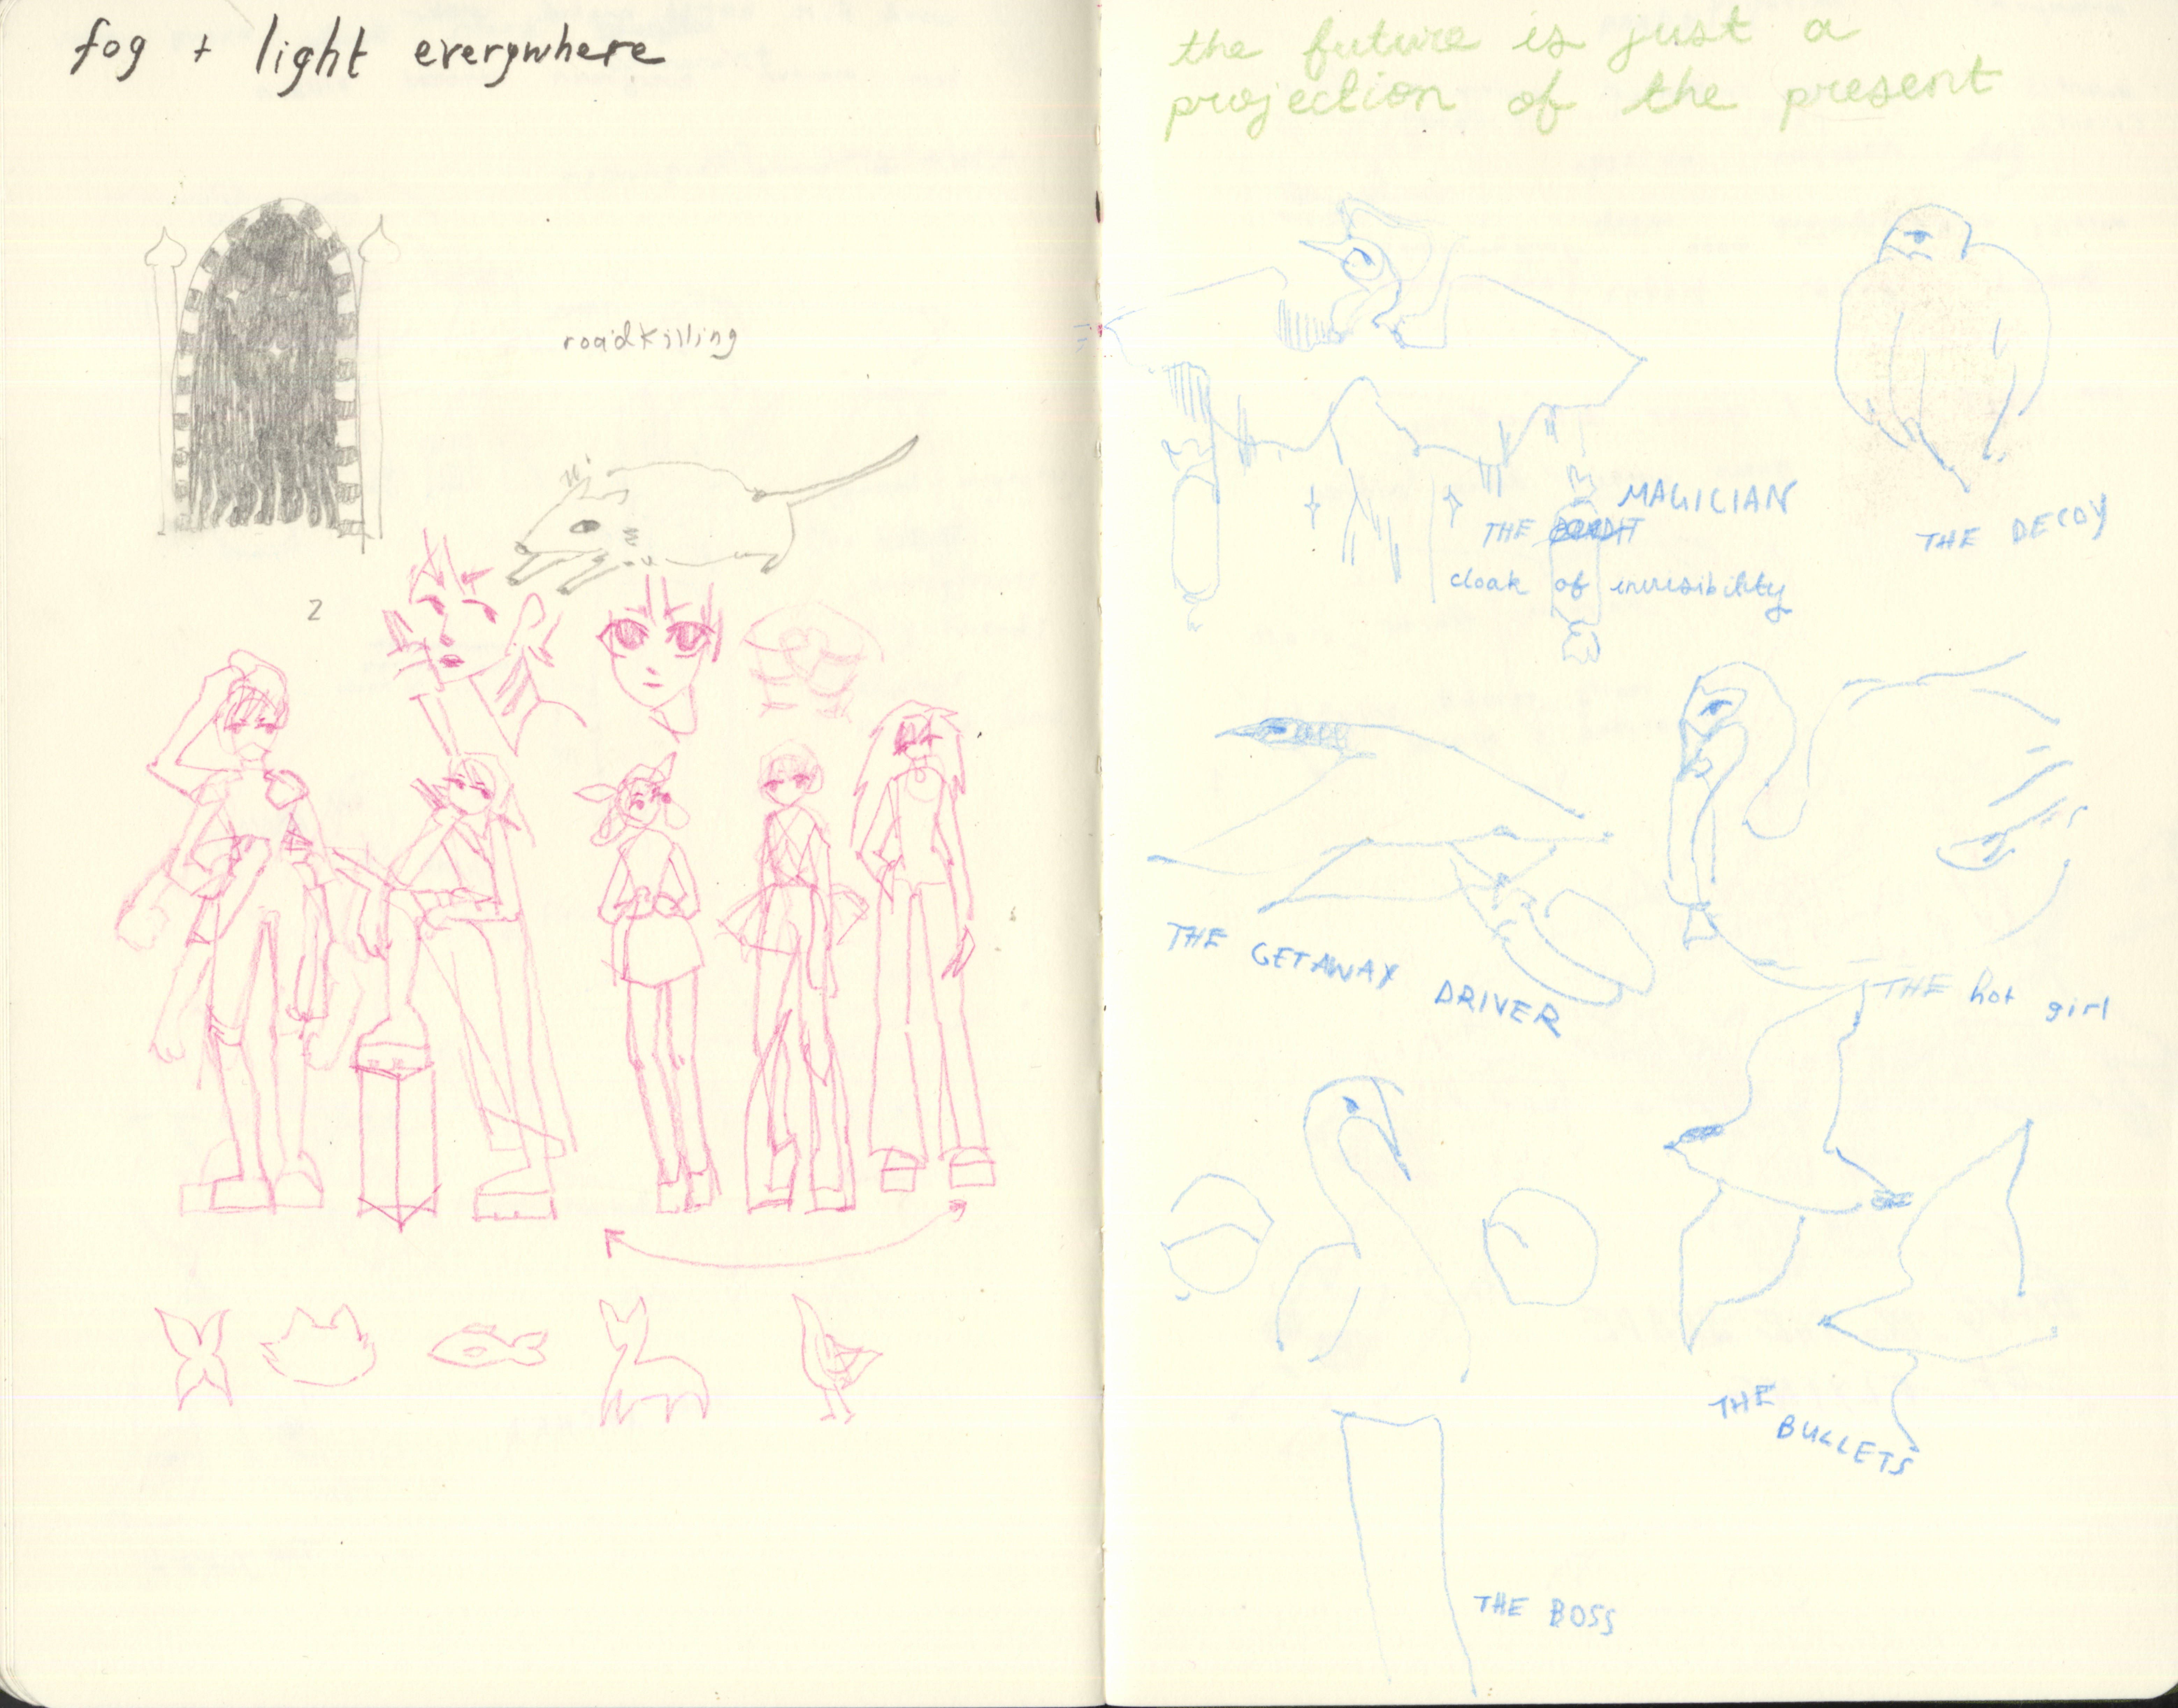 fog + light everywhere
roadkilling
2
the future is just a
projection of the present
MAGICIAN
THE
cloak of invisibility
THE DECOY
THE GETAWAY DRIVER
THE hot girl
THE
BULLETS
THE BOSS